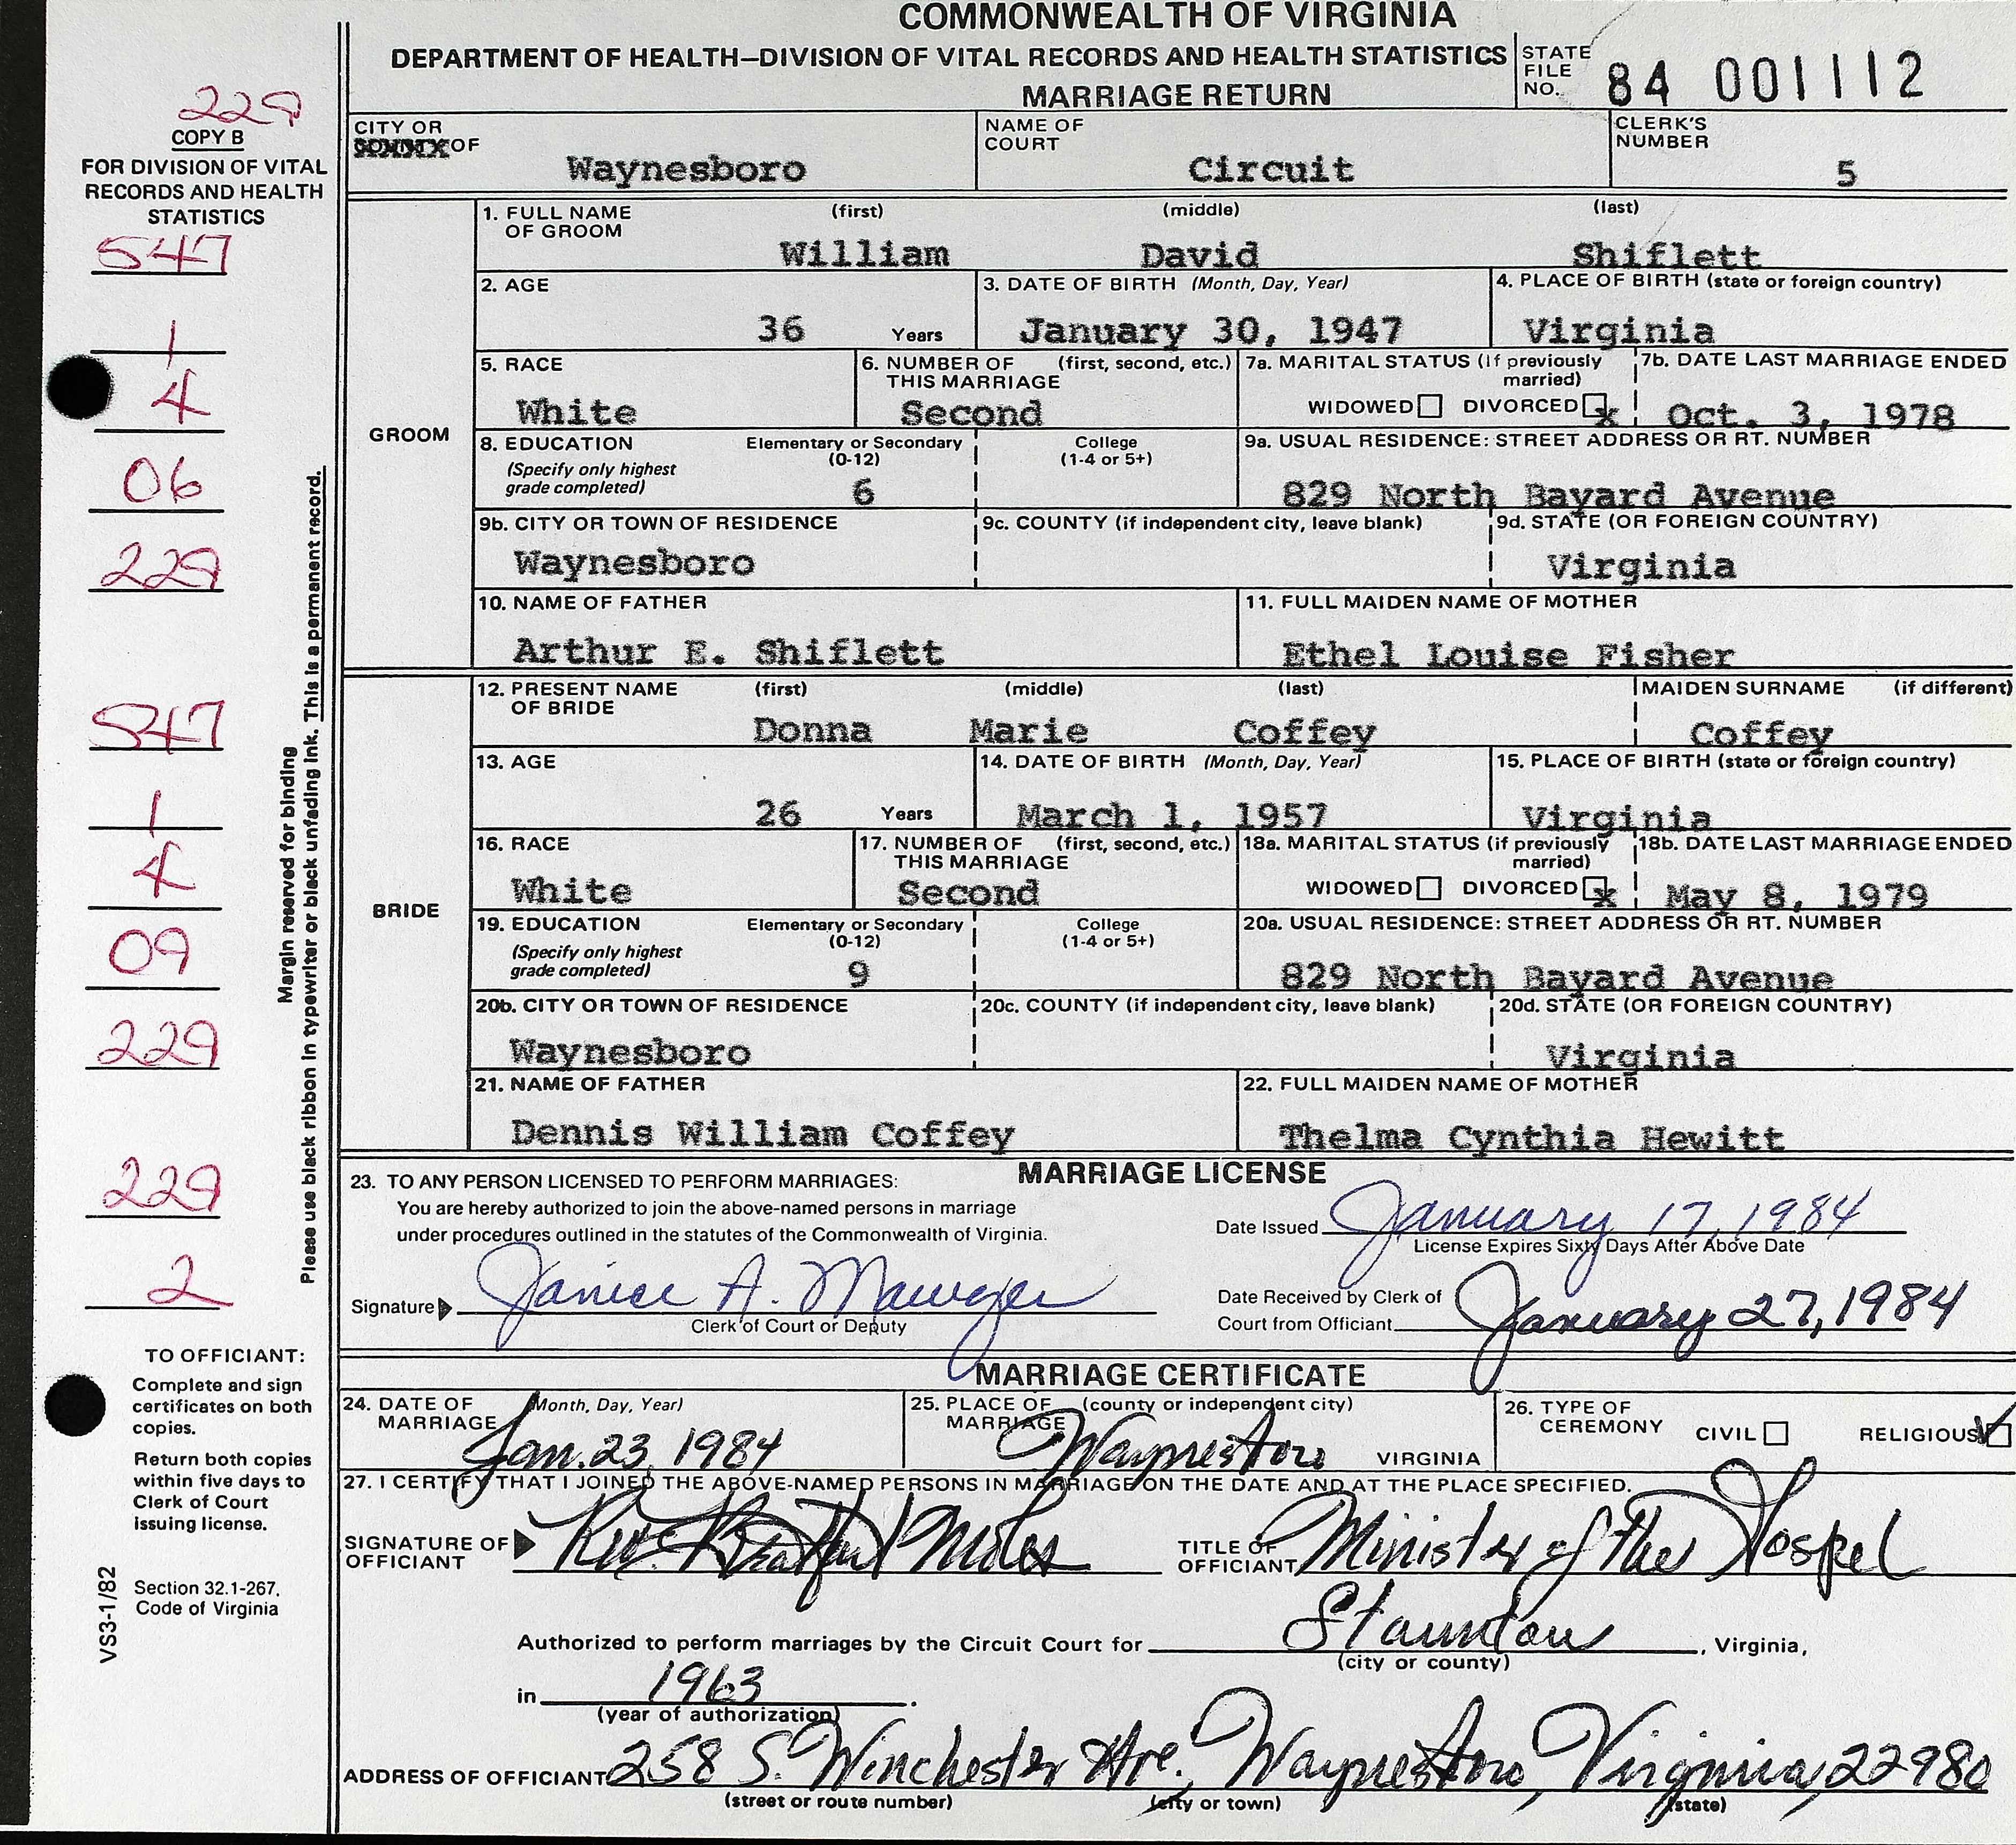 COMMONWEALTH OF VIRGINIA
DEPARTMENT OF HEALTH—DIVISION OF VITAL RECORDS AND HEALTH STATISTICS
MARRIAGE RETURN
STATE FILE NO. 84 001112
229
COPY B
FOR DIVISION OF VITAL
RECORDS AND HEALTH
STATISTICS
547
1
4
06
229
547
1
4
09
229
229
2
Margin reserved for binding
Please use black ribbon in typewriter or black unfading ink. This is a permanent record.
TO OFFICIANT:
Complete and sign
certificates on both
copies.
Return both copies
within five days to
Clerk of Court
issuing license.
Section 32.1-267,
Code of Virginia
VS3-1/82
CITY OR OF Waynesboro
NAME OF COURT Circuit
CLERK'S NUMBER 5
GROOM
1. FULL NAME OF GROOM (first) William (middle) David (last) Shiflett
2. AGE 36 Years
3. DATE OF BIRTH (Month, Day, Year) January 30, 1947
4. PLACE OF BIRTH (state or foreign country) Virginia
5. RACE White
6. NUMBER OF THIS MARRIAGE (first, second, etc.) Second
7a. MARITAL STATUS (if previously married) WIDOWED DIVORCED x
7b. DATE LAST MARRIAGE ENDED Oct. 3, 1978
8. EDUCATION (Specify only highest grade completed) Elementary or Secondary (0-12) 6 College (1-4 or 5+)
9a. USUAL RESIDENCE: STREET ADDRESS OR RT. NUMBER 829 North Bayard Avenue
9b. CITY OR TOWN OF RESIDENCE Waynesboro
9c. COUNTY (if independent city, leave blank)
9d. STATE (OR FOREIGN COUNTRY) Virginia
10. NAME OF FATHER Arthur E. Shiflett
11. FULL MAIDEN NAME OF MOTHER Ethel Louise Fisher
BRIDE
12. PRESENT NAME OF BRIDE (first) Donna (middle) Marie (last) Coffey
MAIDEN SURNAME (if different) Coffey
13. AGE 26 Years
14. DATE OF BIRTH (Month, Day, Year) March 1, 1957
15. PLACE OF BIRTH (state or foreign country) Virginia
16. RACE White
17. NUMBER OF THIS MARRIAGE (first, second, etc.) Second
18a. MARITAL STATUS (if previously married) WIDOWED DIVORCED x
18b. DATE LAST MARRIAGE ENDED May 8, 1979
19. EDUCATION (Specify only highest grade completed) Elementary or Secondary (0-12) 9 College (1-4 or 5+)
20a. USUAL RESIDENCE: STREET ADDRESS OR RT. NUMBER 829 North Bayard Avenue
20b. CITY OR TOWN OF RESIDENCE Waynesboro
20c. COUNTY (if independent city, leave blank)
20d. STATE (OR FOREIGN COUNTRY) Virginia
21. NAME OF FATHER Dennis William Coffey
22. FULL MAIDEN NAME OF MOTHER Thelma Cynthia Hewitt
MARRIAGE LICENSE
23. TO ANY PERSON LICENSED TO PERFORM MARRIAGES:
You are hereby authorized to join the above-named persons in marriage
under procedures outlined in the statutes of the Commonwealth of Virginia.
Date Issued January 17, 1984
License Expires Sixty Days After Above Date
Signature Janice A.
Clerk of Court or Deputy
Date Received by Clerk of
Court from Officiant January 27, 1984
MARRIAGE CERTIFICATE
24. DATE OF MARRIAGE (Month, Day, Year) Jan. 23, 1984
25. PLACE OF MARRIAGE (county or independent city) Waynesboro VIRGINIA
26. TYPE OF CEREMONY CIVIL RELIGIOUS
27. I CERTIFY THAT I JOINED THE ABOVE-NAMED PERSONS IN MARRIAGE ON THE DATE AND AT THE PLACE SPECIFIED.
SIGNATURE OF OFFICIANT Rev.
TITLE OF OFFICIANT Minister of the Gospel
Authorized to perform marriages by the Circuit Court for Staunton, Virginia,
(city or county)
in 1963.
(year of authorization)
ADDRESS OF OFFICIANT 258 S. Winchester Ave., Waynesboro, Virginia, 22980
(street or route number) (city or town) (state)